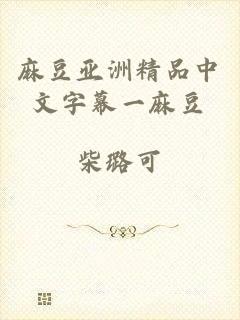 麻豆亚洲精品中
文字幕一麻豆
柴璐可